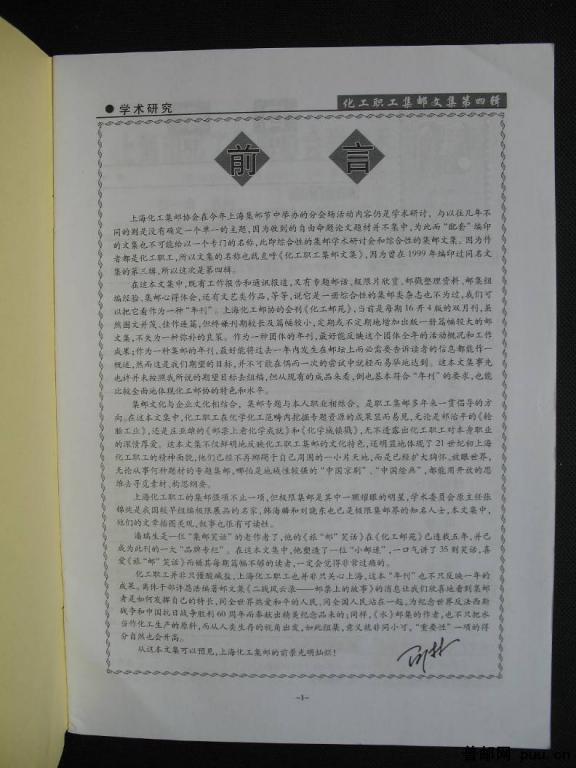 ● 学术研究
化工职工集邮文集第四辑
前言
上海化工集邮协会在今年上海集邮节中举办的分会场活动内容仍是学术研讨，与以往几年不
同的则是没有确定一个单一的主题，因为收到的自由命题论文题材并不集中，为此而“配套”编印
的文集也不可能给以一个专门的名称，此即综合性的集邮学术研讨会和综合性的集邮文集。因为作
者都是化工职工，所以文集的名称也就直呼《化工职工集邮文集》，因为曾在1999年编印过同名文
集的第三辑，所以这次是第四辑。
在这本文集中，既有工作报告和通讯报道，又有专题邮话、极限片欣赏、邮戳整理资料、邮集组
编经验、集邮心得体会，还有文艺类作品，等等，说它是一册综合性的集邮类杂志也不为过，我们可
以把它看作为一种“年刊”。上海化工邮协的会刊《化工邮苑》，当前是每期16开4版的双月刊，虽
然图文并茂、佳作连篇，但终难刊期较长及篇幅较小，定期或不定期地增加出版一册篇幅较大的邮
文集，不失为一种弥补的良策。作为一种团体的年刊，最好能反映这个团体全年的活动概况和工作
成果；作为一种集邮的年刊，最好能将过去一年内发生在邮坛上而必需要告诉读者的信息都能作一
概述，然而这是我们期望的目标，并不可能在偶而一次的尝试中就轻而易举地达到。这本文集事先
也许并未按照我所说的期望目标去组稿，但从现有的成品来看，倒也基本符合“年刊”的要求，也能
比较全面地体现化工邮协的特色和水平。
集邮文化与企业文化相结合、集邮专题与本人职业相结合，是职工集邮多年来一贯倡导的方
向。在这本文集中，化工职工在化学化工范畴内挖掘专题资源的成果显而易见，无论是邮洽平的《轮
胎工业》，还是庄亚雄的《邮票上看化学成就》和《化学城镇戳》，无不透露出化工职工对本身职业
的深情厚爱。这本文集不仅鲜明地反映化工职工集邮的文化特色，还明显地体现了21世纪初上海
化工职工的精神面貌，他们已经不再拘囿于自己周围的一小片天地，而是已经扩大胸怀、放眼世界，
无论从事何种题材的专题集邮，哪怕是地域性较强的“中国京剧”、“中国绘画”，都能用开放的思
维去寻觅素材、构思纲要。
上海化工职工的集邮强项不止一项，但极限集邮是其中一颗耀眼的明星，学术委员会原主任张
锦苑是我国较早组编极限展品的名家，韩海麟和刘晓东也已是极限集邮界的知名人士，本文集中，
他们的文章插图美观，叙事也很有可读性。
潘瑞生是一位“集邮笑话”的老作者了，他的《旅“邮”笑话》在《化工邮苑》已连载五年，并已
成为此刊的一大“品牌专栏”。在这本文集中，他塑造了一位“小邮迷”，一口气讲了35则笑话，喜
爱《旅“邮”笑话》而嫌其每期篇幅不够的读者，一定会觉得非常过瘾的。
化工职工并非只懂酸碱盐，上海化工职工也并非只关心上海，这本“年刊”也不只反映一年的
成果。离休干部许恩活编著邮文集《二战风云录——邮票上的故事》的消息让我们欣喜地看到集邮
者是如何发挥自己的特长，同全世界热爱和平的人民、同全国人民站在一起，为纪念世界反法西斯
战争和中国抗日战争胜利60周年而奉献出精美纪念品来的；同样，《水》邮集的作者，也不只把水
当作化工生产的原料，而从人类生存的视角出发，如此组集，意义就非同小可，“重要性”一项的得
分自然也会升高。
从这本文集可以预见，上海化工集邮的前景光明灿烂！
-1-
普邮网 puu.cn